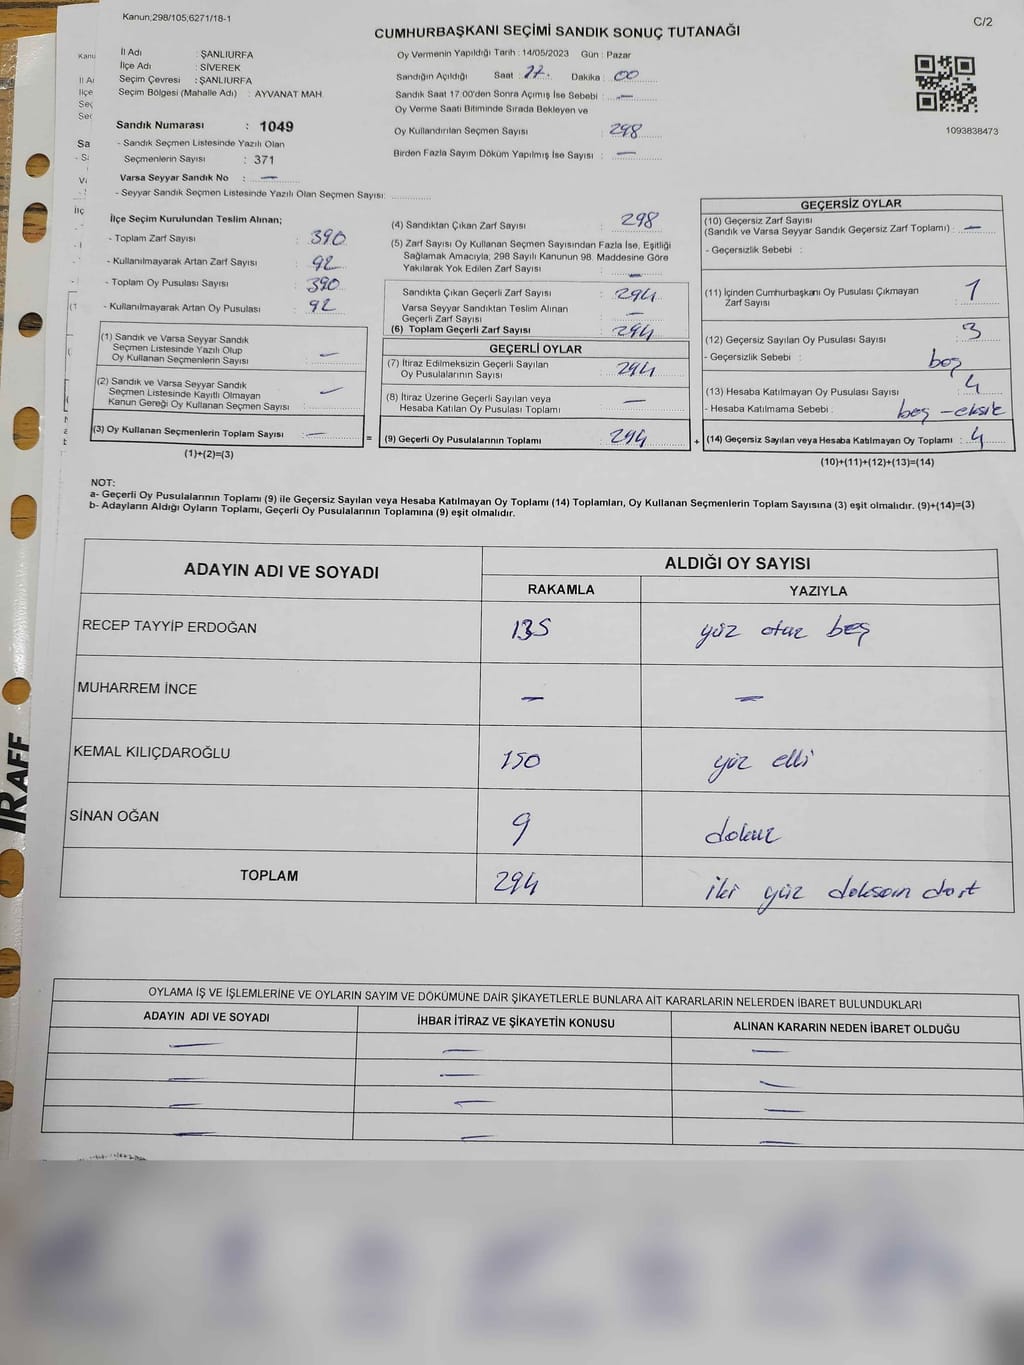 Kanun;298/105;6271/18-1
C/2
CUMHURBAŞKANI SEÇİMİ SANDIK SONUÇ TUTANAĞI
İl Adı : ŞANLIURFA
İlçe Adı : SİVEREK
Seçim Çevresi : ŞANLIURFA
Seçim Bölgesi (Mahalle Adı) : AYVANAT MAH.
Sandık Numarası : 1049
- Sandık Seçmen Listesinde Yazılı Olan
Seçmenlerin Sayısı : 371
Varsa Seyyar Sandık No : —
- Seyyar Sandık Seçmen Listesinde Yazılı Olan Seçmen Sayısı:
Oy Vermenin Yapıldığı Tarih : 14/05/2023 Gün : Pazar
Sandığın Açıldığı Saat : 17. Dakika : 00
Sandık Saat 17:00'den Sonra Açımış İse Sebebi : —
Oy Verme Saati Bitiminde Sırada Bekleyen ve
Oy Kullandırılan Seçmen Sayısı : 298
Birden Fazla Sayım Döküm Yapılmış İse Sayısı : —
1093838473
İlçe Seçim Kurulundan Teslim Alınan;
- Toplam Zarf Sayısı : 390
- Kullanılmayarak Artan Zarf Sayısı : 92
- Toplam Oy Pusulası Sayısı : 390
- Kullanılmayarak Artan Oy Pusulası : 92
(1) Sandık ve Varsa Seyyar Sandık
Seçmen Listesinde Yazılı Olup
Oy Kullanan Seçmenlerin Sayısı : —
(2) Sandık ve Varsa Seyyar Sandık
Seçmen Listesinde Kayıtlı Olmayan
Kanun Gereği Oy Kullanan Seçmen Sayısı : —
(3) Oy Kullanan Seçmenlerin Toplam Sayısı : —
(1)+(2)=(3)
=
(4) Sandıktan Çıkan Zarf Sayısı : 298
(5) Zarf Sayısı Oy Kullanan Seçmen Sayısından Fazla İse, Eşitliği
Sağlamak Amacıyla, 298 Sayılı Kanunun 98. Maddesine Göre
Yakılarak Yok Edilen Zarf Sayısı : —
Sandıkta Çıkan Geçerli Zarf Sayısı : 294
Varsa Seyyar Sandıktan Teslim Alınan
Geçerli Zarf Sayısı : —
(6) Toplam Geçerli Zarf Sayısı : 294
GEÇERLİ OYLAR
(7) İtiraz Edilmeksizin Geçerli Sayılan
Oy Pusulalarının Sayısı : 294
(8) İtiraz Üzerine Geçerli Sayılan veya
Hesaba Katılan Oy Pusulası Toplamı : —
(9) Geçerli Oy Pusulalarının Toplamı : 294
+
GEÇERSİZ OYLAR
(10) Geçersiz Zarf Sayısı
(Sandık ve Varsa Seyyar Sandık Geçersiz Zarf Toplamı) : —
- Geçersizlik Sebebi :
(11) İçinden Cumhurbaşkanı Oy Pusulası Çıkmayan
Zarf Sayısı : 1
(12) Geçersiz Sayılan Oy Pusulası Sayısı : 3
- Geçersizlik Sebebi : boş
(13) Hesaba Katılmayan Oy Pusulası Sayısı : 4
- Hesaba Katılmama Sebebi : boş - eksik
(14) Geçersiz Sayılan veya Hesaba Katılmayan Oy Toplamı : 4
(10)+(11)+(12)+(13)=(14)
NOT:
a- Geçerli Oy Pusulalarının Toplamı (9) ile Geçersiz Sayılan veya Hesaba Katılmayan Oy Toplamı (14) Toplamları, Oy Kullanan Seçmenlerin Toplam Sayısına (3) eşit olmalıdır. (9)+(14)=(3)
b- Adayların Aldığı Oyların Toplamı, Geçerli Oy Pusulalarının Toplamına (9) eşit olmalıdır.
ADAYIN ADI VE SOYADI ALDIĞI OY SAYISI
RAKAMLA YAZIYLA
RECEP TAYYİP ERDOĞAN 135 yüz otuz beş
MUHARREM İNCE — —
KEMAL KILIÇDAROĞLU 150 yüz elli
SİNAN OĞAN 9 dokuz
TOPLAM 294 iki yüz doksan dört
OYLAMA İŞ VE İŞLEMLERİNE VE OYLARIN SAYIM VE DÖKÜMÜNE DAİR ŞİKAYETLERLE BUNLARA AİT KARARLARIN NELERDEN İBARET BULUNDUKLARI
ADAYIN ADI VE SOYADI İHBAR İTİRAZ VE ŞİKAYETİN KONUSU ALINAN KARARIN NEDEN İBARET OLDUĞU
— — —
— — —
— — —
— — —